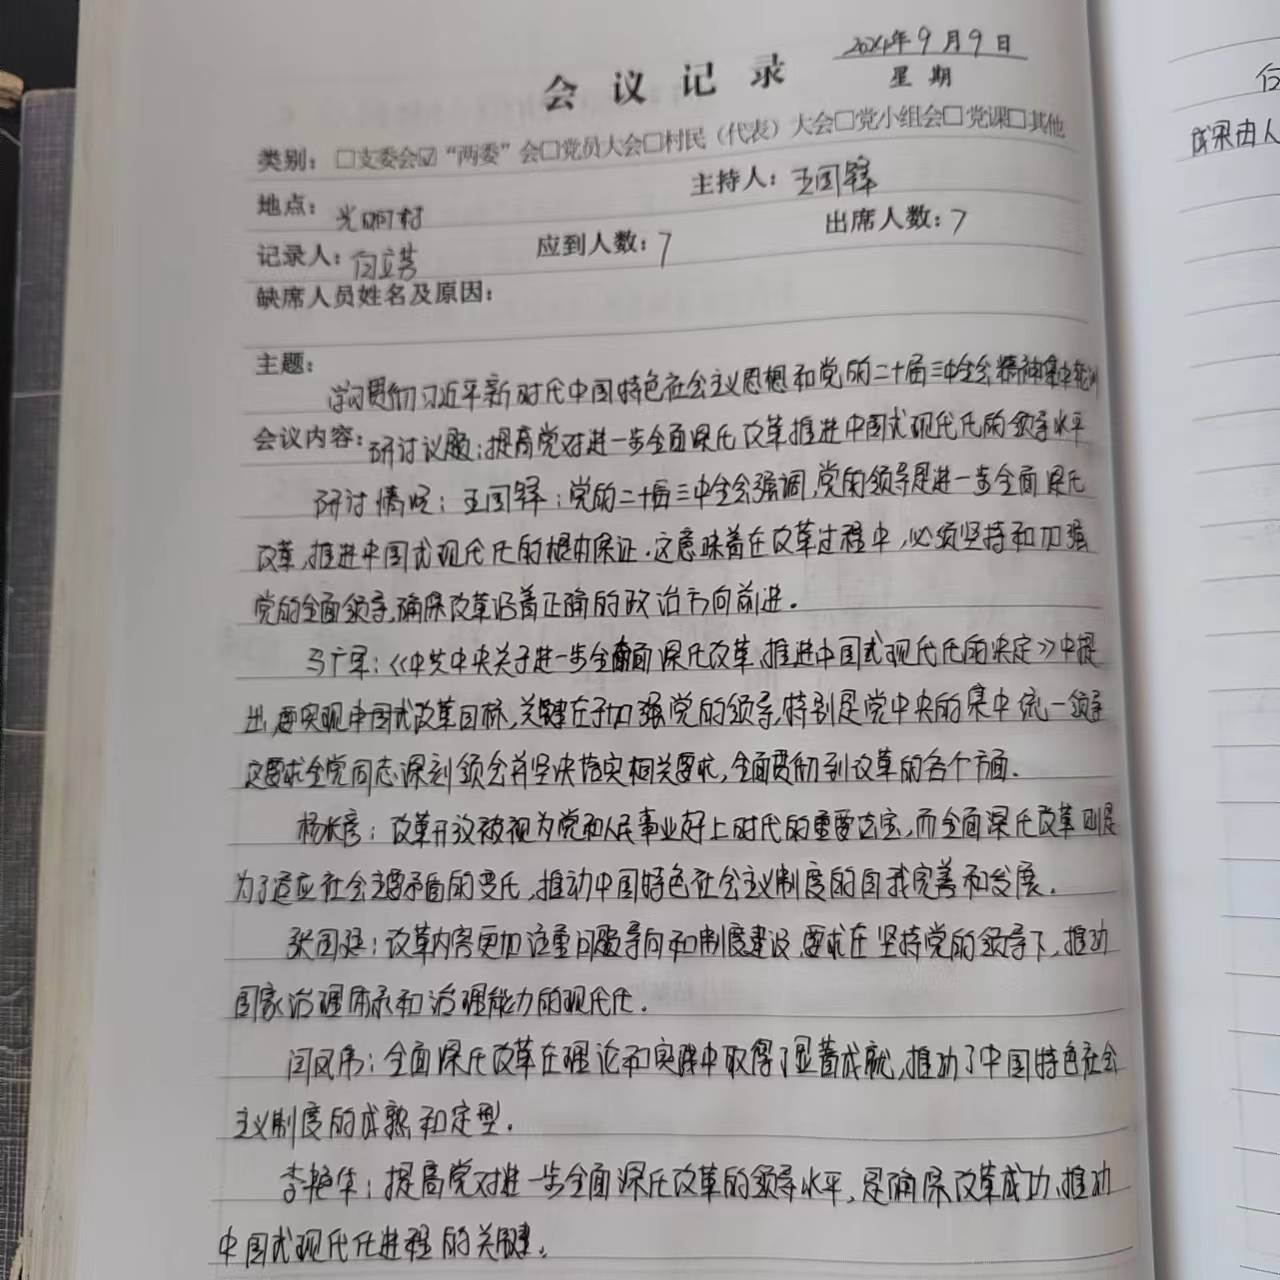 2024年9月9日
会议记录
星期
类别：□支委会☑“两委”会□党员大会□村民（代表）大会□党小组会□党课□其他
地点：光明村 主持人：王国铎
记录人：白立芳 应到人数：7 出席人数：7
缺席人员姓名及原因：
主题：
学习贯彻习近平新时代中国特色社会主义思想和党的二十届三中全会精神集中轮训
会议内容：研讨议题：提高党对进一步全面深化改革推进中国式现代化的领导水平
研讨情况：王国铎：党的二十届三中全会强调，党的领导是进一步全面深化
改革，推进中国式现代化的根本保证．这意味着在改革过程中，必须坚持和加强
党的全面领导，确保改革沿着正确的政治方向前进．
马广军：《中共中央关于进一步全面深化改革，推进中国式现代化的决定》中提
出，要实现中国式改革目标，关键在于加强党的领导，特别是党中央的集中统一领导
这要求全党同志深刻领会并坚决落实相关要求，全面贯彻到改革的各个方面．
杨长彦：改革开放被视为党和人民事业好上时代的重要法宝，而全面深化改革则是
为了适应社会主要矛盾的变化，推动中国特色社会主义制度的自我完善和发展．
张国廷：改革内容更加注重问题导向和制度建设，要求在坚持党的领导下，推动
国家治理体系和治理能力的现代化．
闫凤伟：全面深化改革在理论和实践中取得了显著成就，推动了中国特色社会
主义制度的成熟和定型．
李艳华：提高党对进一步全面深化改革的领导水平，是确保改革成功、推动
中国式现代化进程的关键。
白
成果由人